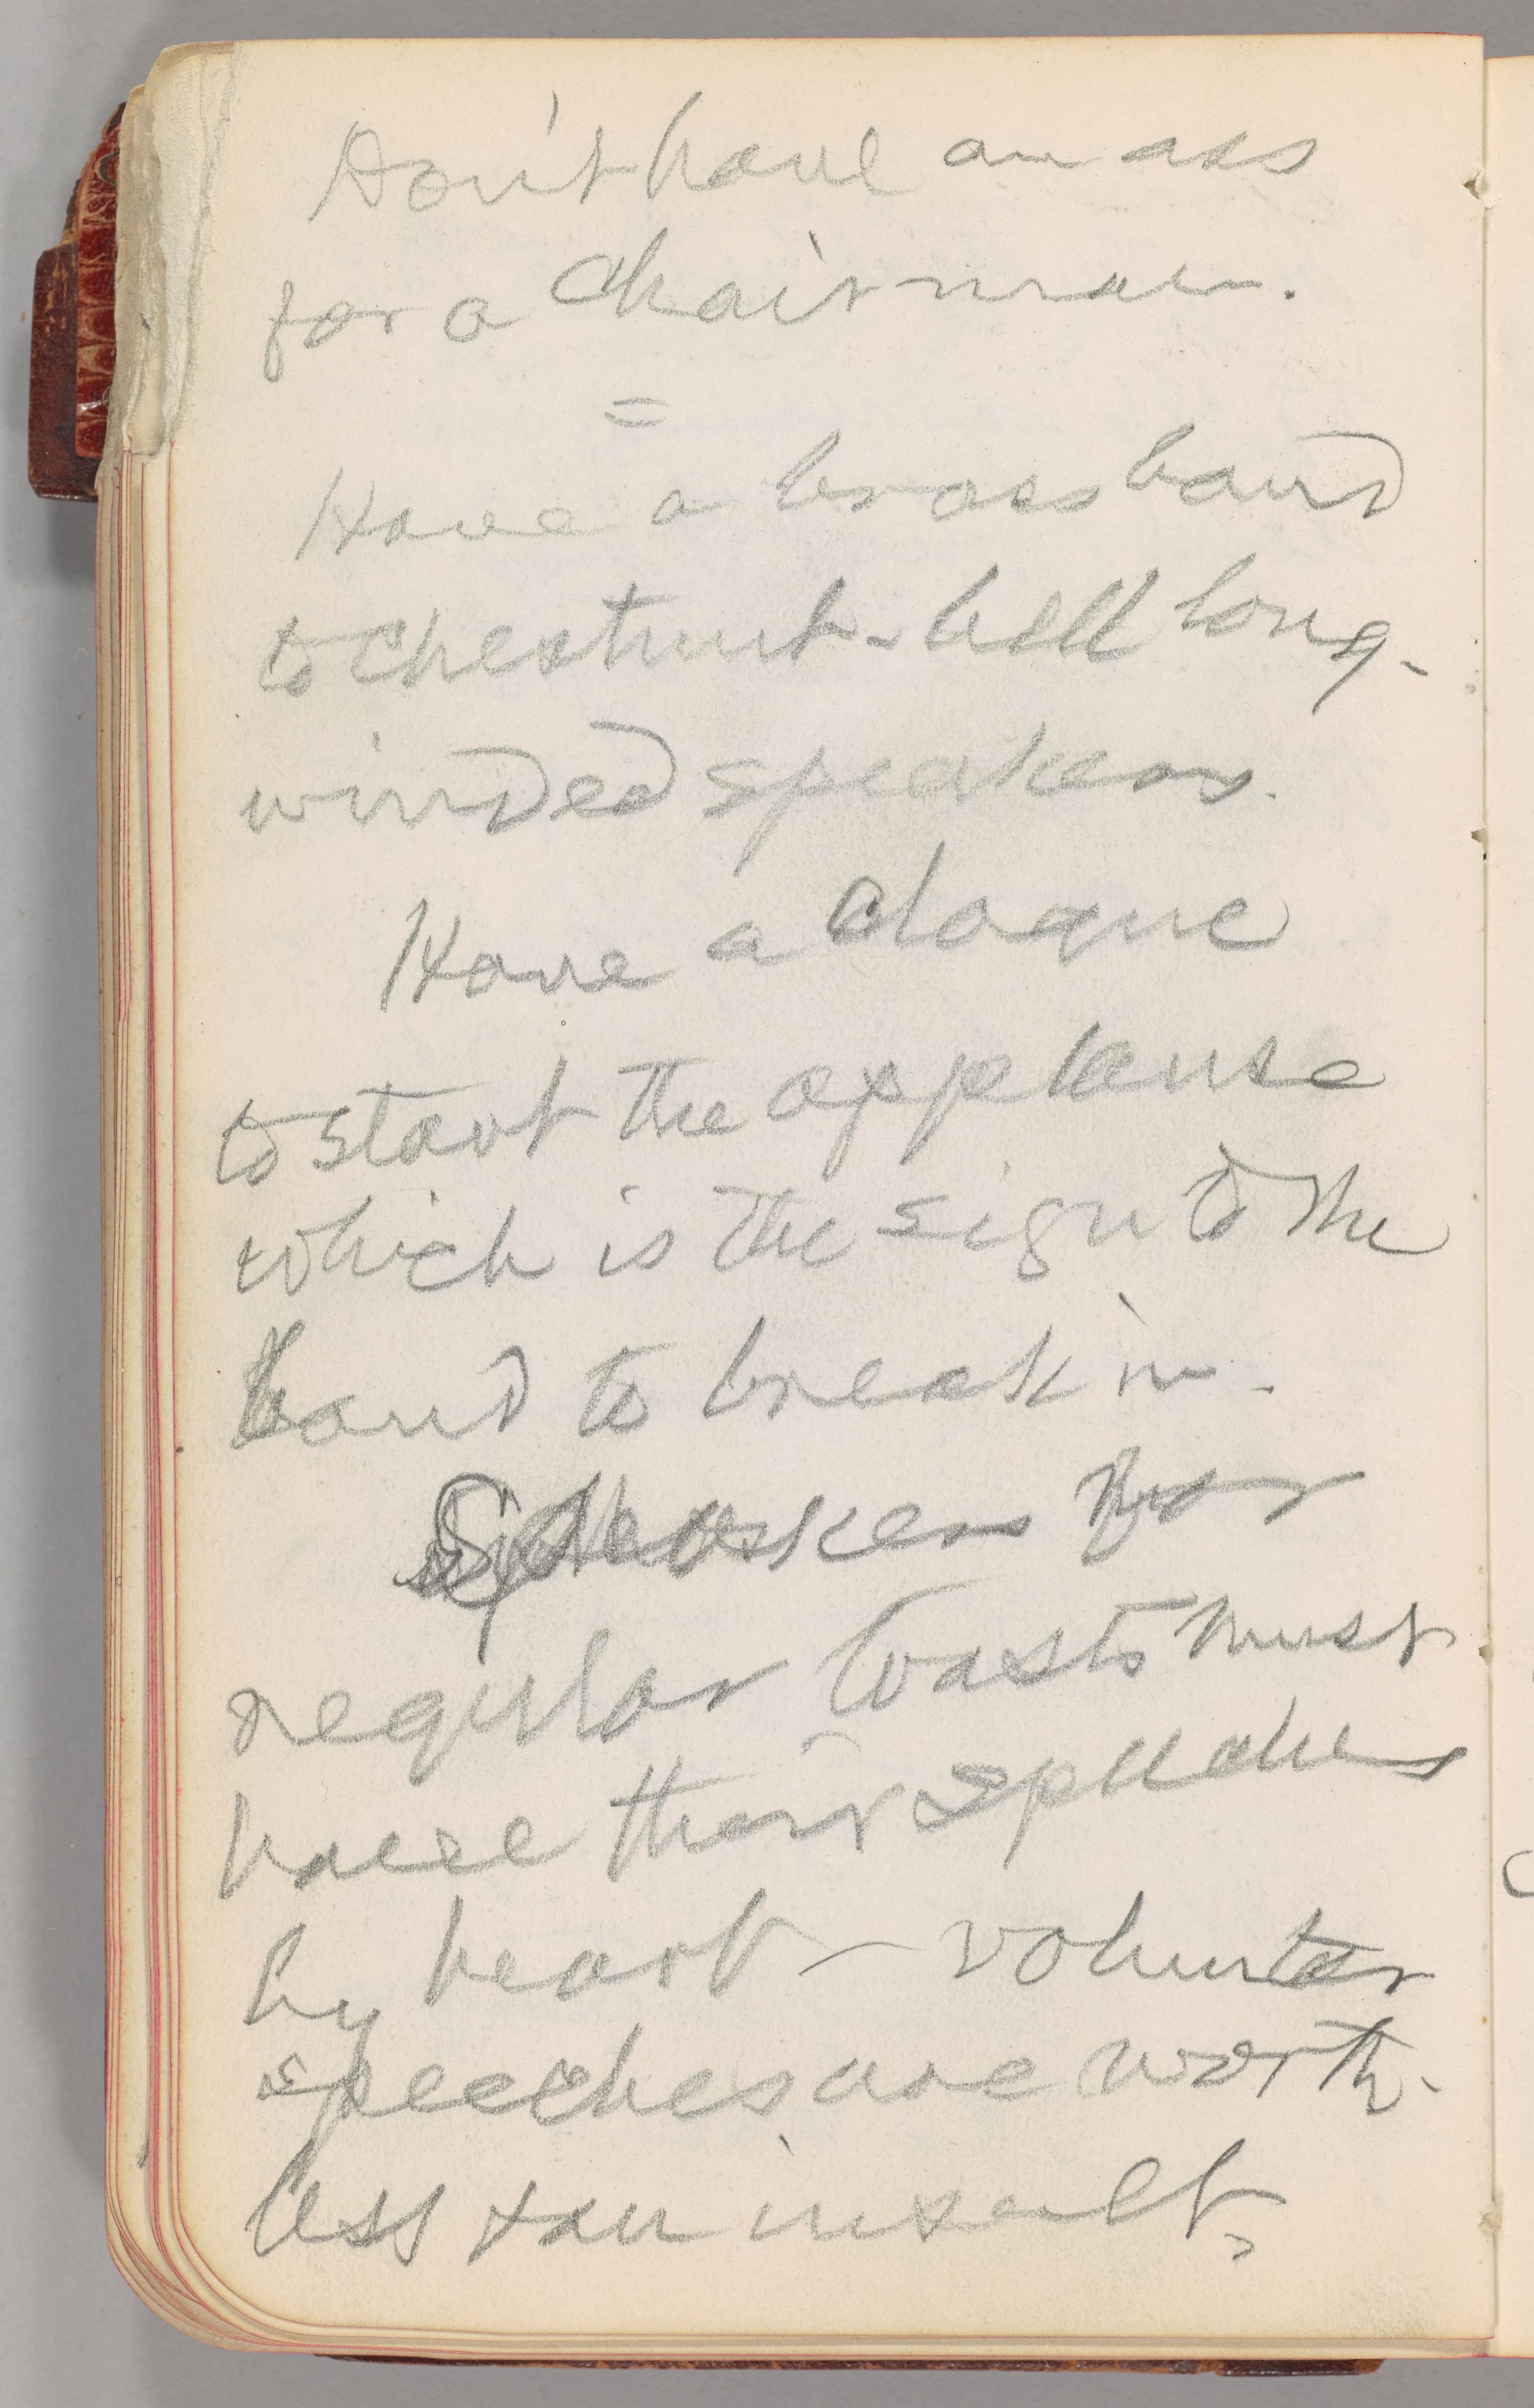 Don't have an ass
for a Chairman.
=
Have a brass band
to chestnut-bell long-
winded speakers.
Have a claque
to start the applause
which is the sign to the
band to break in.
Speakers for
regular toasts must
have their speeches
by heart – volunteer
speeches are worth-
less & an insult,